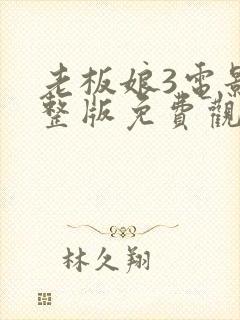 老板娘3電影
整版免費觀
林久翔